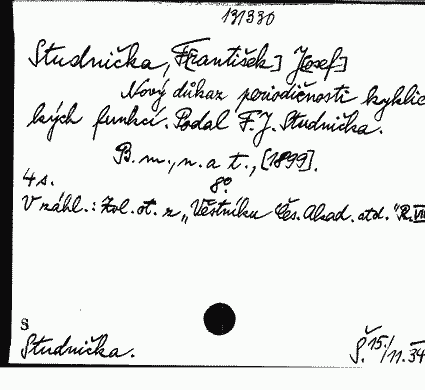 131330
Studnička, F[rantišek] J[osef]
Nový důkaz periodičnosti kyklic
kých funkcí. Podal F. J. Studnička.
B. m., n. a t., [1899].
4 s. 8°
V záhl.: Zvl. ot. z „Věstníku Čes. Akad. atd." R. VIII
S
Studnička.
Š. 15./11. 34